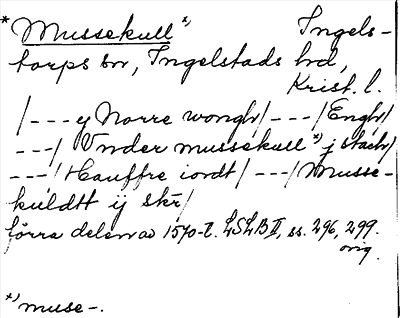 * Mussekull *) Ingels-
torps sn, Ingelstads hd,
Krist. l.
/---y Norre wongh/---/Engh/
---/ Vnder mussekull *) j stach/
---/ Hauffre iordt/---/Musse-
kuldtt ij skr/
förra delen av 1570-t. LSLB II, ss. 296, 299.
orig.
*) muse-.